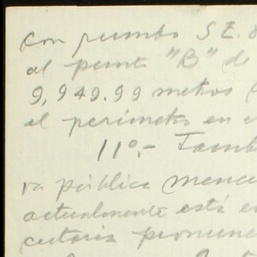 con rumbo S E.
al punto "B" de
9,949.99 metros
el perímetro en
11º.- Tamb
va pública menc
actualmente está e
cutoria pronunc